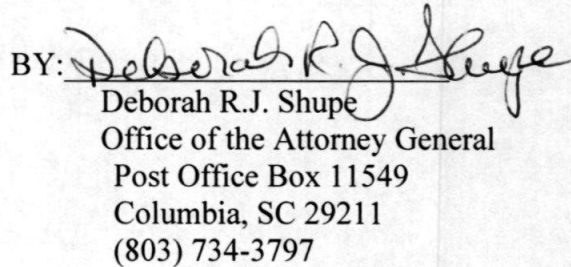 BY: Deborah R. J. Shupe
Deborah R.J. Shupe
Office of the Attorney General
Post Office Box 11549
Columbia, SC 29211
(803) 734-3797